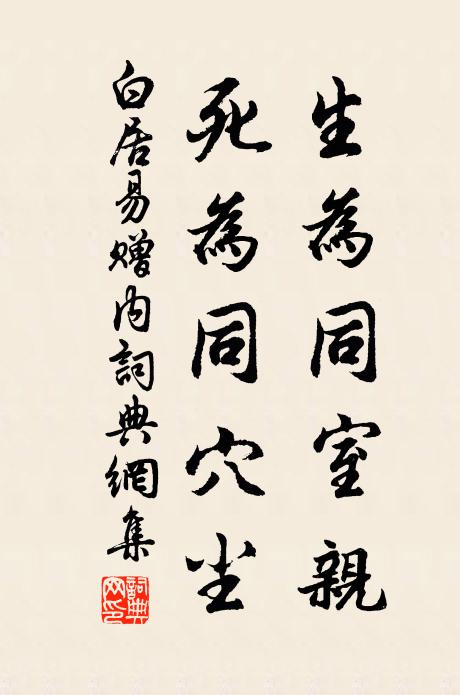 生為同室親
死為同穴尘
白居易贈内詞典網集
詞典网印